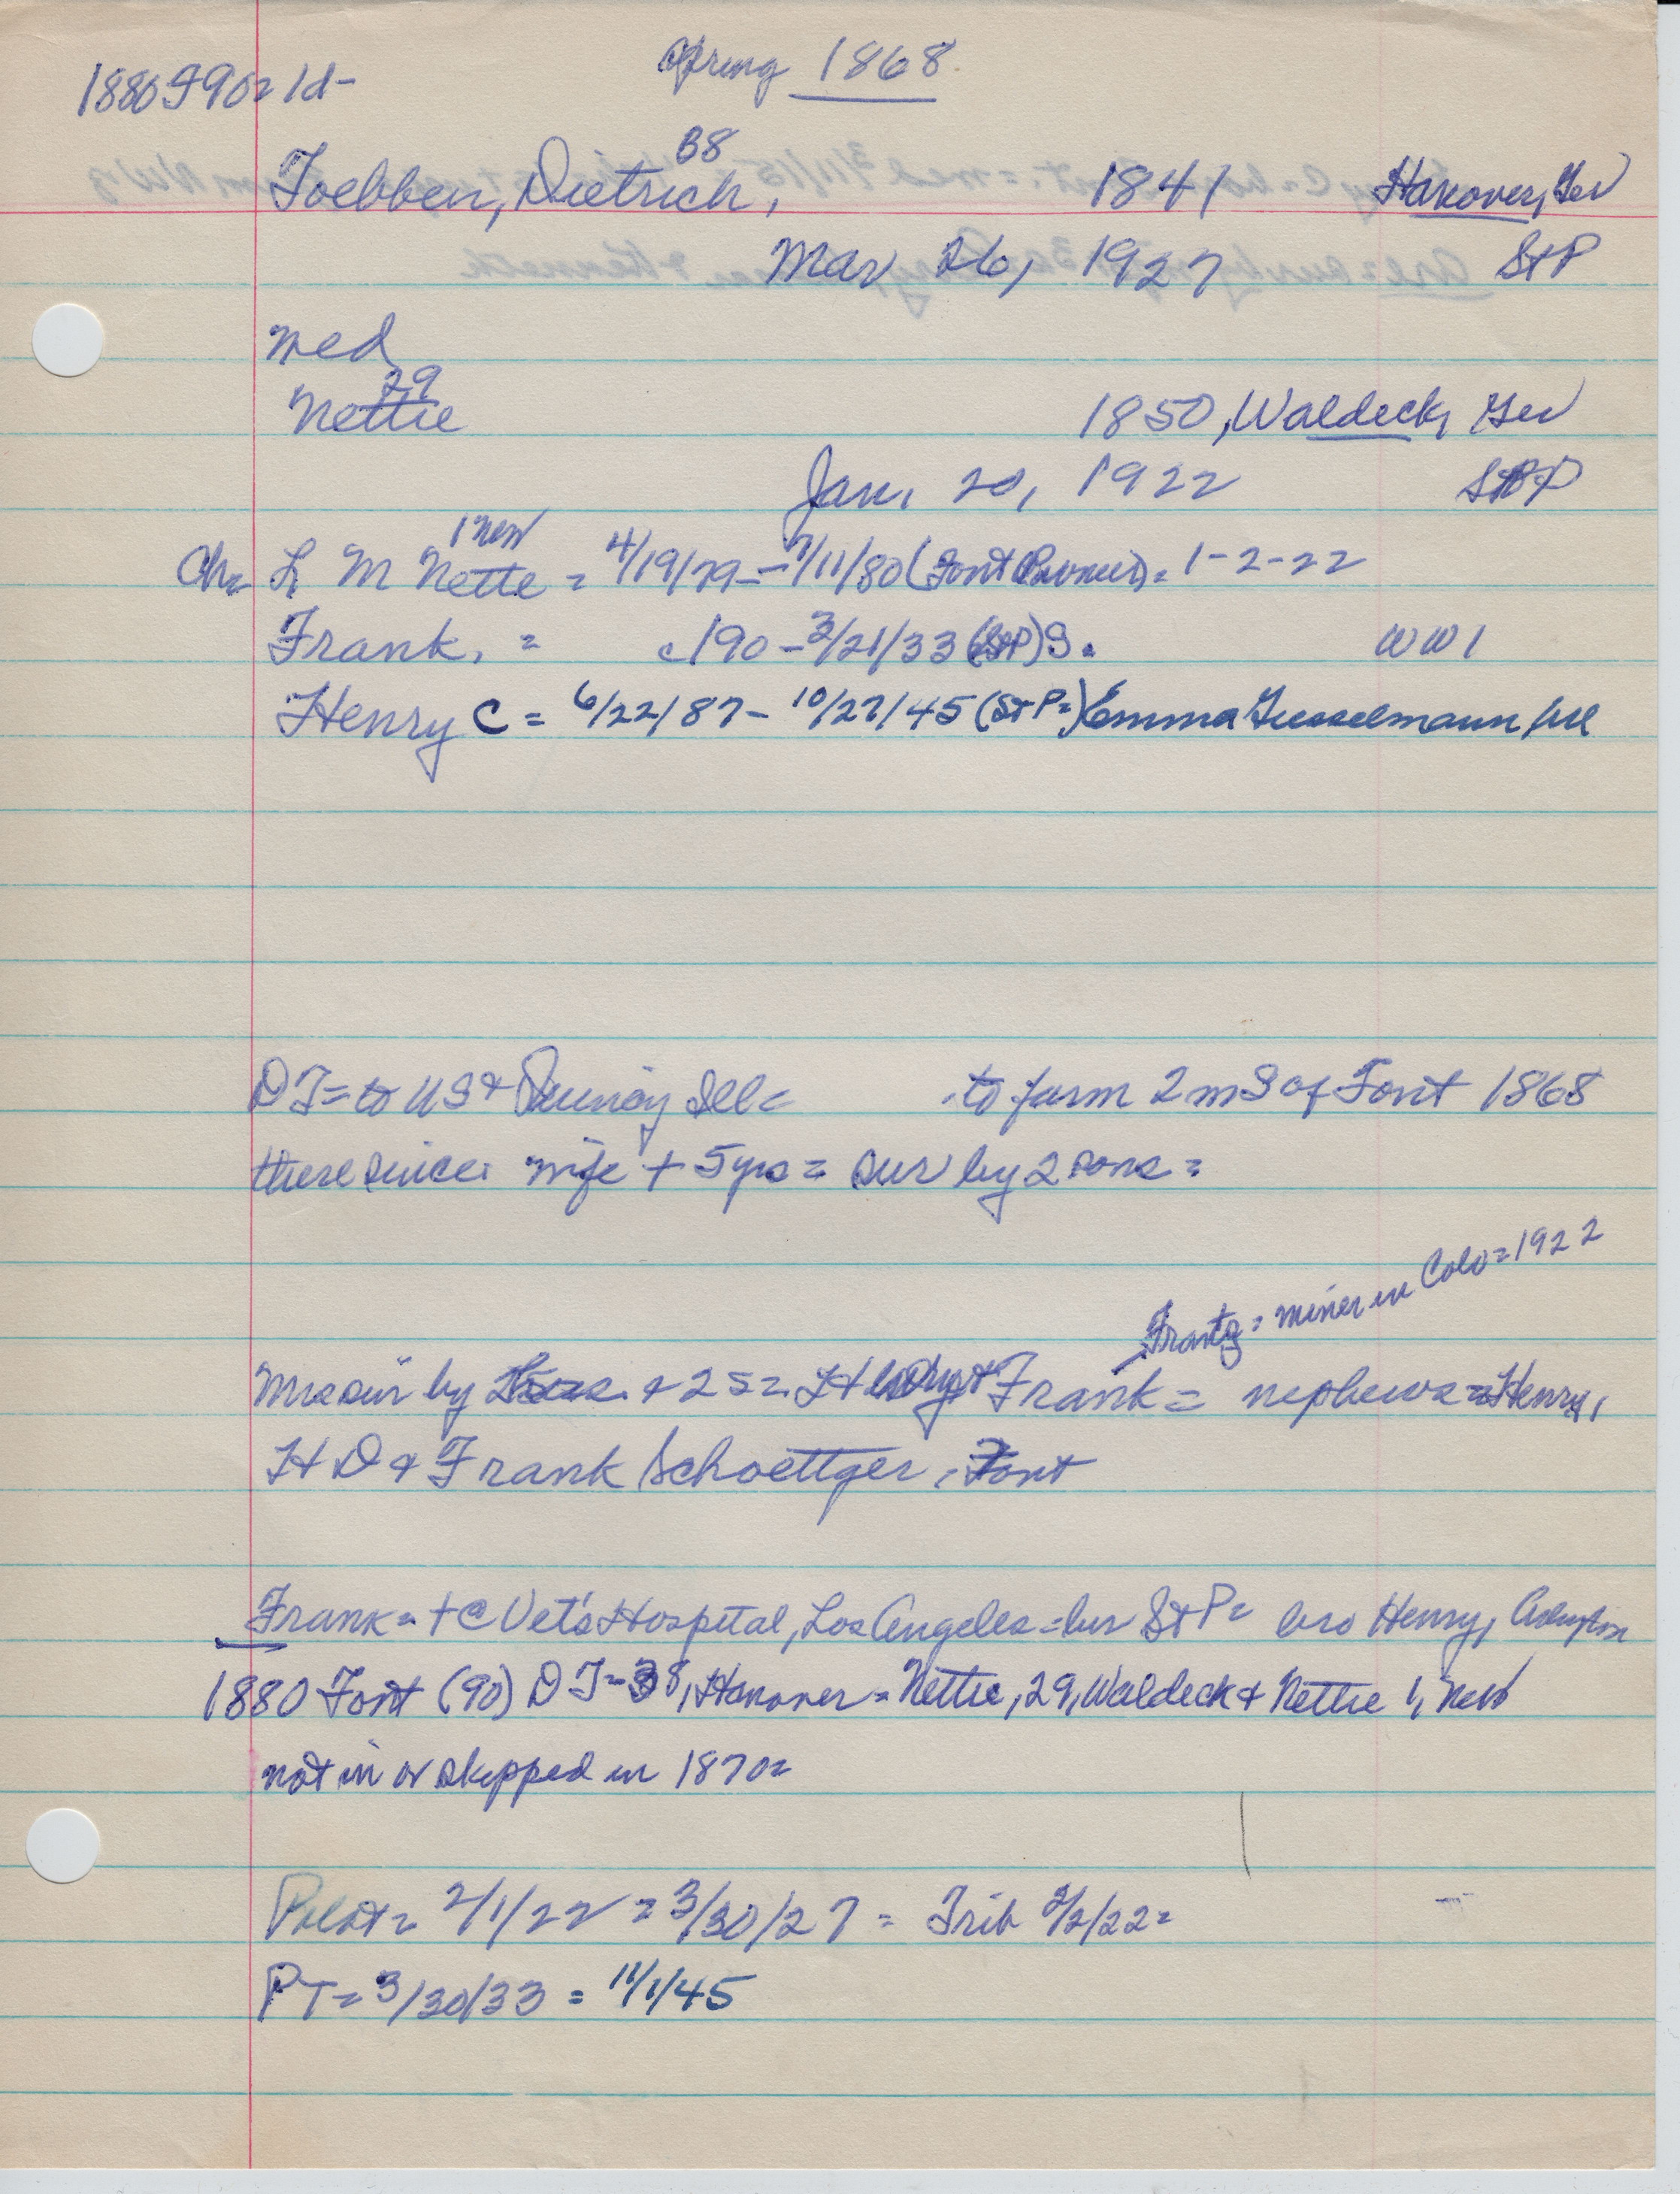 Spring 1868
1880 F90= 1d-
38
Toebben, Dietrich, 1841 Hanover, Ger
Mar 26, 1927 StP
med
29
Nettie 1850, Waldeck, Ger
Jan. 20, 1922 StP
1 Neb
Ch= L M Nette = 4/19/79 - 7/11/80 (Font = 1-2-22
Frank, = c190 - 3/21/33 (StP) S. WW1
Henry C = 6/22/87 - 10/27/45 (St P=) Emma
DT= to US + Quincy Ill= to farm 2 m S of Font 1868
there since. wife + 5 yrs = sur by 2 sons =
Frantz = miner in Colo = 1922
Mrs sur by + 2 s = H + Frank = nephews = Henry,
H D & Frank Schoettger, Font
Frank = + @ Vet's Hospital, Los Angeles = bur St P= bro Henry,
1880 Font (90) D T=38, Hanover = Nettie, 29, Waldeck & Nettie 1, Neb
not in or skipped in 1870=
Pilot = 2/1/22 = 3/30/27 = Trib 2/2/22=
PT = 3/30/33 = 11/1/45